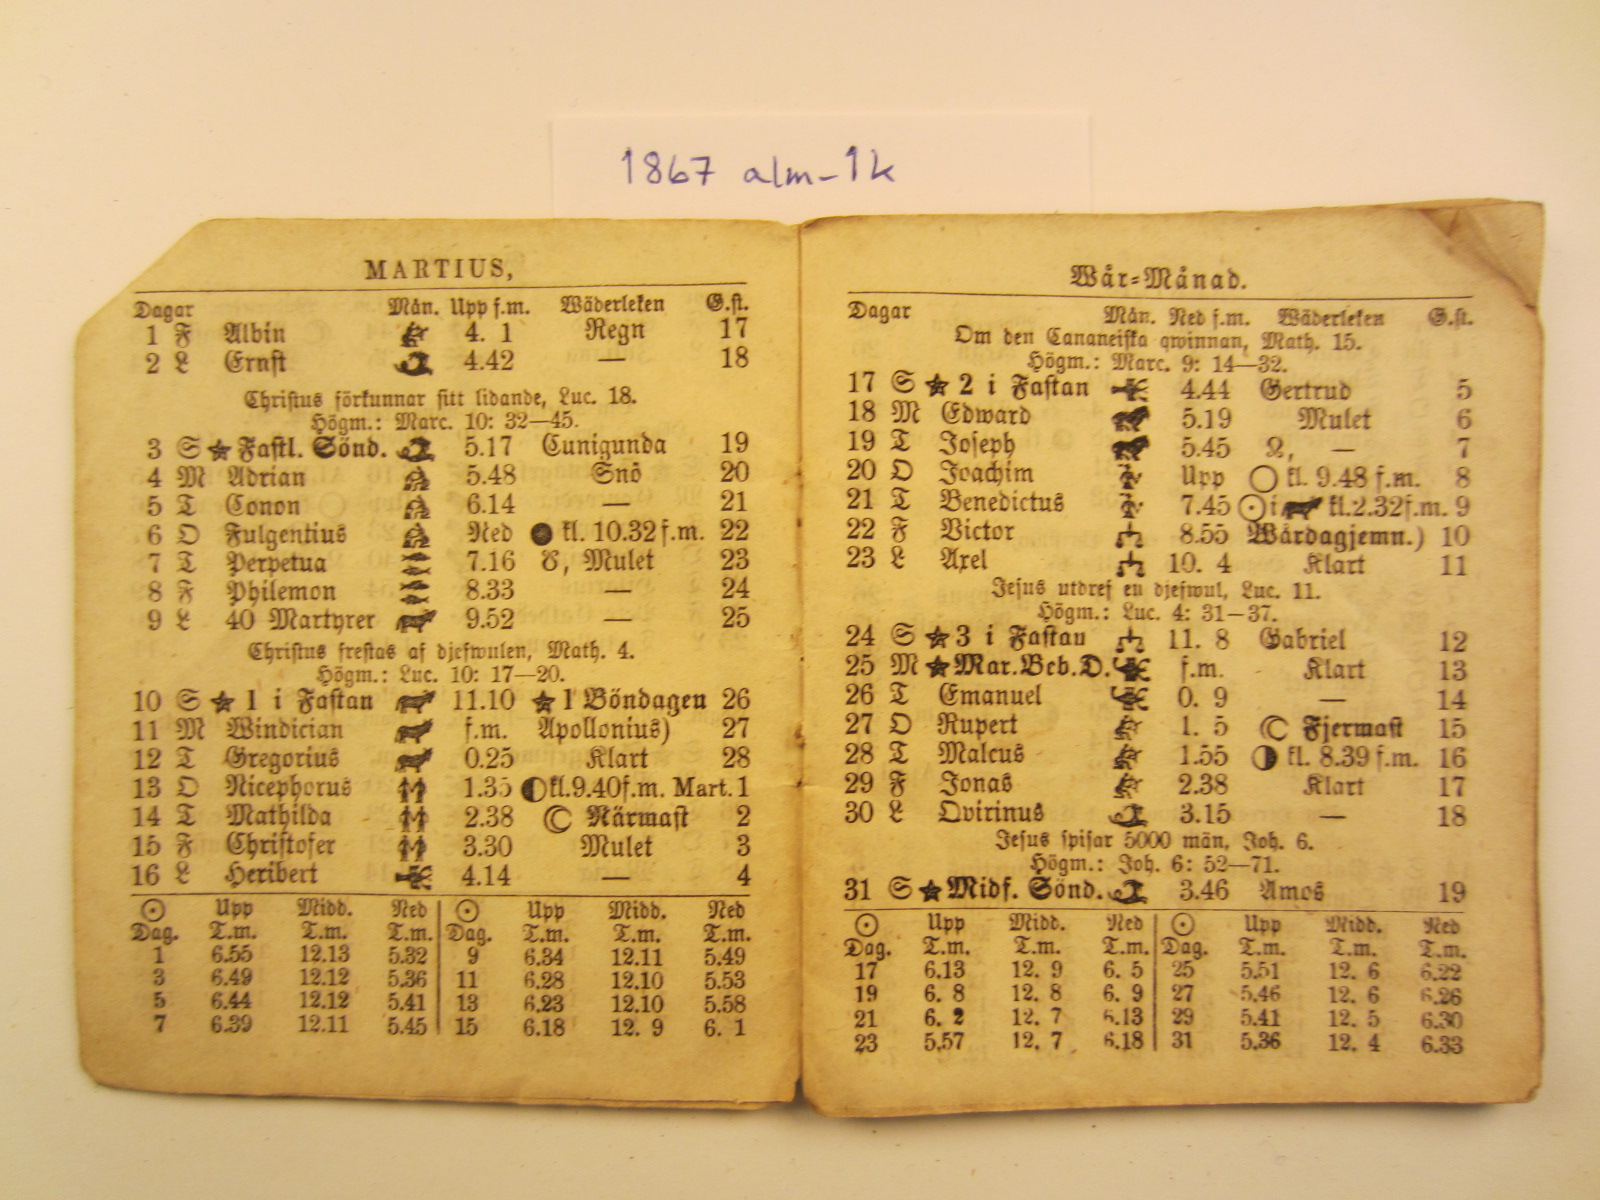 1867 alm-1k
MARTIUS,
Dagar Mån. Upp f.m. Wäderleken G.st.
1 F Albin 4. 1 Regn 17
2 L Ernst 4.42 — 18
Christus förkunnar sitt lidande, Luc. 18.
Högm.: Marc. 10: 32—45.
3 S ★ Fastl. Sönd. 5.17 Cunigunda 19
4 M Adrian 5.48 Snö 20
5 T Conon 6.14 — 21
6 O Fulgentius Ned ● kl. 10.32 f.m. 22
7 T Perpetua 7.16 ☋, Mulet 23
8 F Philemon 8.33 — 24
9 L 40 Martyrer 9.52 — 25
Christus frestas af djefwulen, Math. 4.
Högm.: Luc. 10: 17—20.
10 S ★ 1 i Fastan 11.10 ★ 1 Böndagen 26
11 M Windician f.m. Apollonius) 27
12 T Gregorius 0.25 Klart 28
13 O Nicephorus 1.35 ◐ kl.9.40f.m. Mart. 1
14 T Mathilda 2.38 ☾ Närmast 2
15 F Christofer 3.30 Mulet 3
16 L Heribert 4.14 — 4
☉ Upp Midd. Ned | ☉ Upp Midd. Ned
Dag. T.m. T.m. T.m. | Dag. T.m. T.m. T.m.
1 6.55 12.13 5.32 | 9 6.34 12.11 5.49
3 6.49 12.12 5.36 | 11 6.28 12.10 5.53
5 6.44 12.12 5.41 | 13 6.23 12.10 5.58
7 6.39 12.11 5.45 | 15 6.18 12. 9 6. 1
Wår-Månad.
Dagar Mån. Ned f.m. Wäderleken G.st.
Om den Cananeiska qwinnan, Math. 15.
Högm.: Marc. 9: 14—32.
17 S ★ 2 i Fastan 4.44 Gertrud 5
18 M Edward 5.19 Mulet 6
19 T Joseph 5.45 ☊, — 7
20 O Joachim Upp ○ kl. 9.48 f.m. 8
21 T Benedictus 7.45 ☉ i kl.2.32f.m. 9
22 F Victor 8.55 Wårdagjemn.) 10
23 L Axel 10. 4 Klart 11
Jesus utdref en djefwul, Luc. 11.
Högm.: Luc. 4: 31—37.
24 S ★ 3 i Fastan 11. 8 Gabriel 12
25 M ★ Mar.Beb.D. f.m. Klart 13
26 T Emanuel 0. 9 — 14
27 O Rupert 1. 5 ☾ Fjermast 15
28 T Malcus 1.55 ◑ kl. 8.39 f.m. 16
29 F Jonas 2.38 Klart 17
30 L Qvirinus 3.15 — 18
Jesus spisar 5000 män, Joh. 6.
Högm.: Joh. 6: 52—71.
31 S ★ Midf. Sönd. 3.46 Amos 19
☉ Upp Midd. Ned | ☉ Upp Midd. Ned
Dag. T.m. T.m. T.m. | Dag. T.m. T.m. T.m.
17 6.13 12. 9 6. 5 | 25 5.51 12. 6 6.22
19 6. 8 12. 8 6. 9 | 27 5.46 12. 6 6.26
21 6. 2 12. 7 6.13 | 29 5.41 12. 5 6.30
23 5.57 12. 7 6.18 | 31 5.36 12. 4 6.33